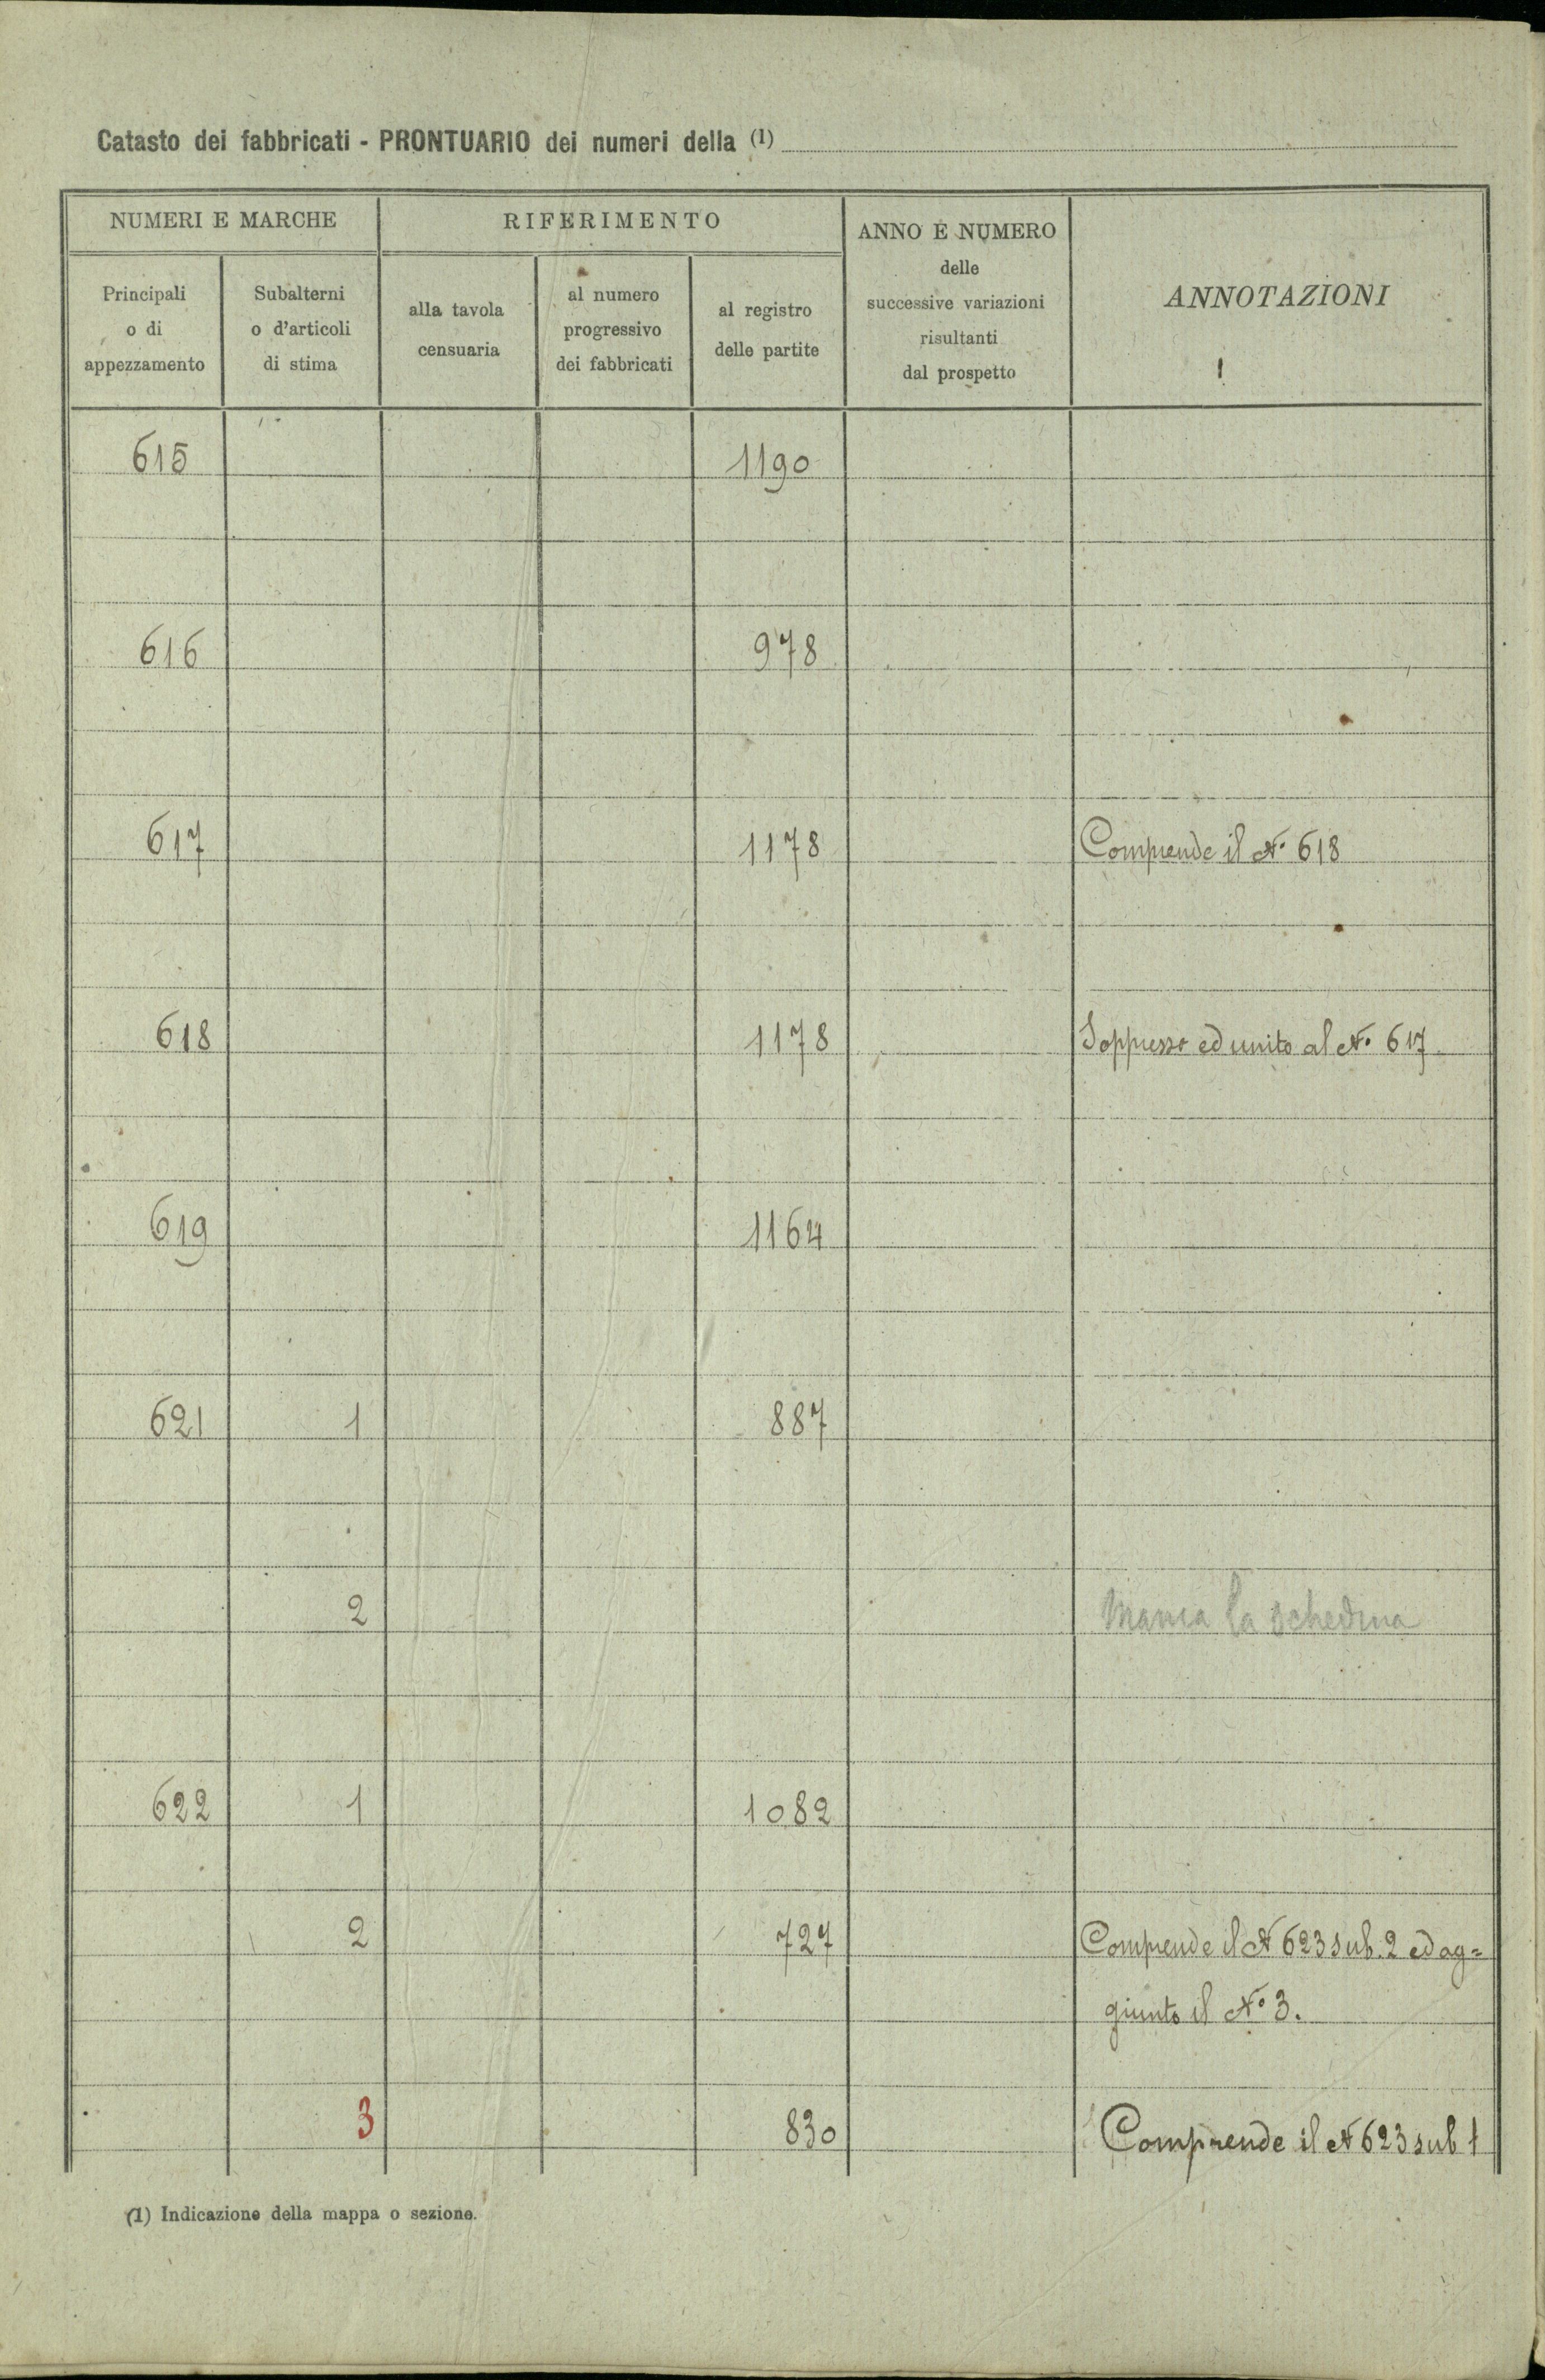 Catasto dei fabbricati - PRONTUARIO dei numeri della (1)
NUMERI E MARCHE
RIFERIMENTO
ANNO E NUMERO
delle
successive variazioni
risultanti
dal prospetto
ANNOTAZIONI
Principali
o di
appezzamento
Subalterni
o d'articoli
di stima
alla tavola
censuaria
al numero
progressivo
dei fabbricati
al registro
delle partite
615 1190
616 978
617 1178 Comprende il N° 618
618 1178 Soppresso ed unito al N° 617
619 1164
621 1 887
2 Manca la schedina
622 1 1082
2 727 Comprende il N 623 sub. 2 ed ag=
giunto il N° 3.
3 830 Comprende il N 623 sub 1
(1) Indicazione della mappa o sezione.